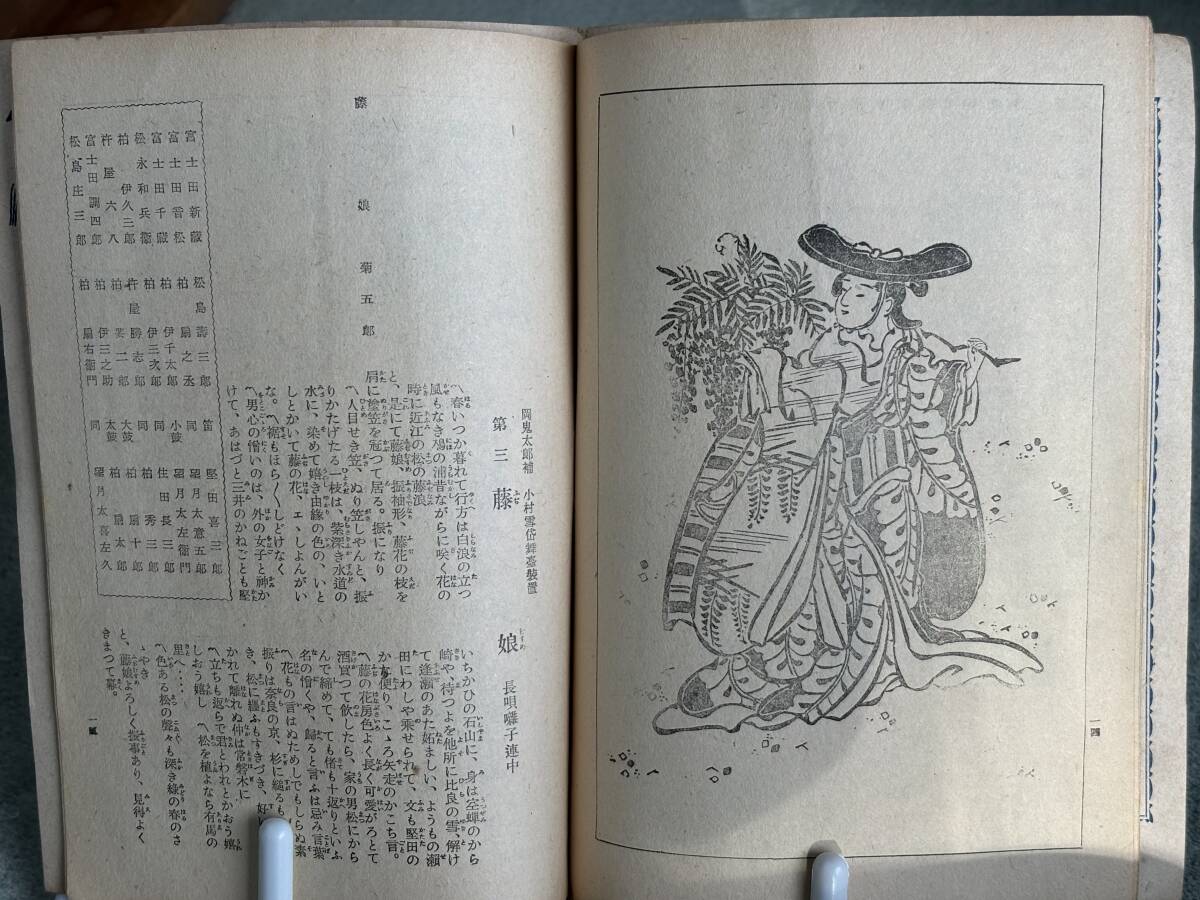 一四
岡鬼太郎補 小村雪岱舞臺裝置
第三 藤娘 長唄囃子連中
〽春いつか暮れて行方は白浪の立つ
風もなき鳰の浦昔ながらに咲く花の
時に近江の松の藤浪
と、是にて藤娘、振袖形、藤花の枝を
肩に塗笠を冠つて居る。振になり
〽人目せき笠、ぬり笠しやんと、振
りかたげたる一枝は、紫深き水道の
水に、染めて嬉き由縁の色の、いと
しとかいて藤の花、エヽしよんがい
な。〽裾もほら〱しどけなく
〽男心の憎いのは、外の女子と神か
けて、あはづと三井のかねごとも堅
いちかひの石山に、身は空蟬のから
崎や、待つよを他所に比良の雪、解け
て逢瀨のあた妬ましい、ようもの瀨
田にわしや乘せられて、文も堅田の
かた便り、こゝろ矢走のかこち言。
〽藤の花房色よく長く可愛がろとて
酒買つて飮したら、家の男松にから
んで締めて、ても偖も十返りといふ
名の憎くや、歸ると言ふは忌み言葉
〽花もの言はぬためしでもしらぬ素
振りは奈良の京、杉に縋るも
き、松に纒ふもすきずき、好い
かれて離れぬ仲は常磐木に
〽立ちも返らで君とわれとかおう嬉
しおう嬉し 〽松を植よなら有馬の
里へ‥‥
〽色ある松の聲々も深き綠の春のさ
ゝやき
と、藤娘よろしく振事あり、見得よく
きまつて幕。
藤娘 菊五郎
富士田新藏
富士田音松
富士田千藏
松永和兵衞
柏伊久三郎
杵屋六八
富士田調四郎
松島庄三郎
松島壽三郎
柏扇之丞
柏伊千太郎
柏伊三次郎
杵屋勝志郎
柏芙二郎
柏伊三之助
柏扇右衞門
笛 堅田喜三郎
同 望月太意五郎
小鼓 望月太左衞門
同 住田長三郎
同 柏秀三郎
大鼓 柏扇十郎
太鼓 柏扇太郎
同 望月太喜左久